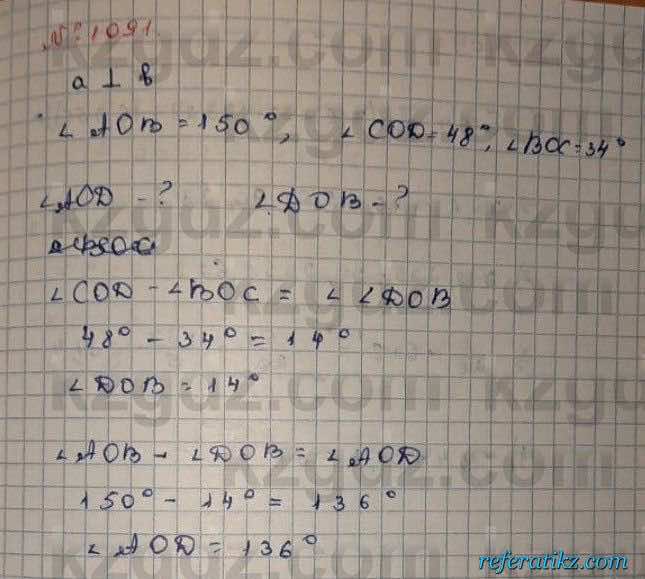 №1091.
a ⊥ b
∠AOB = 150°, ∠COD = 48°, ∠BOC = 34°
∠AOD - ? ∠DOB - ?
∠COD - ∠BOC = ∠ ∠DOB
48° - 34° = 14°
∠DOB = 14°
∠AOB - ∠DOB = ∠AOD
150° - 14° = 136°
∠AOD = 136°
referatikz.com